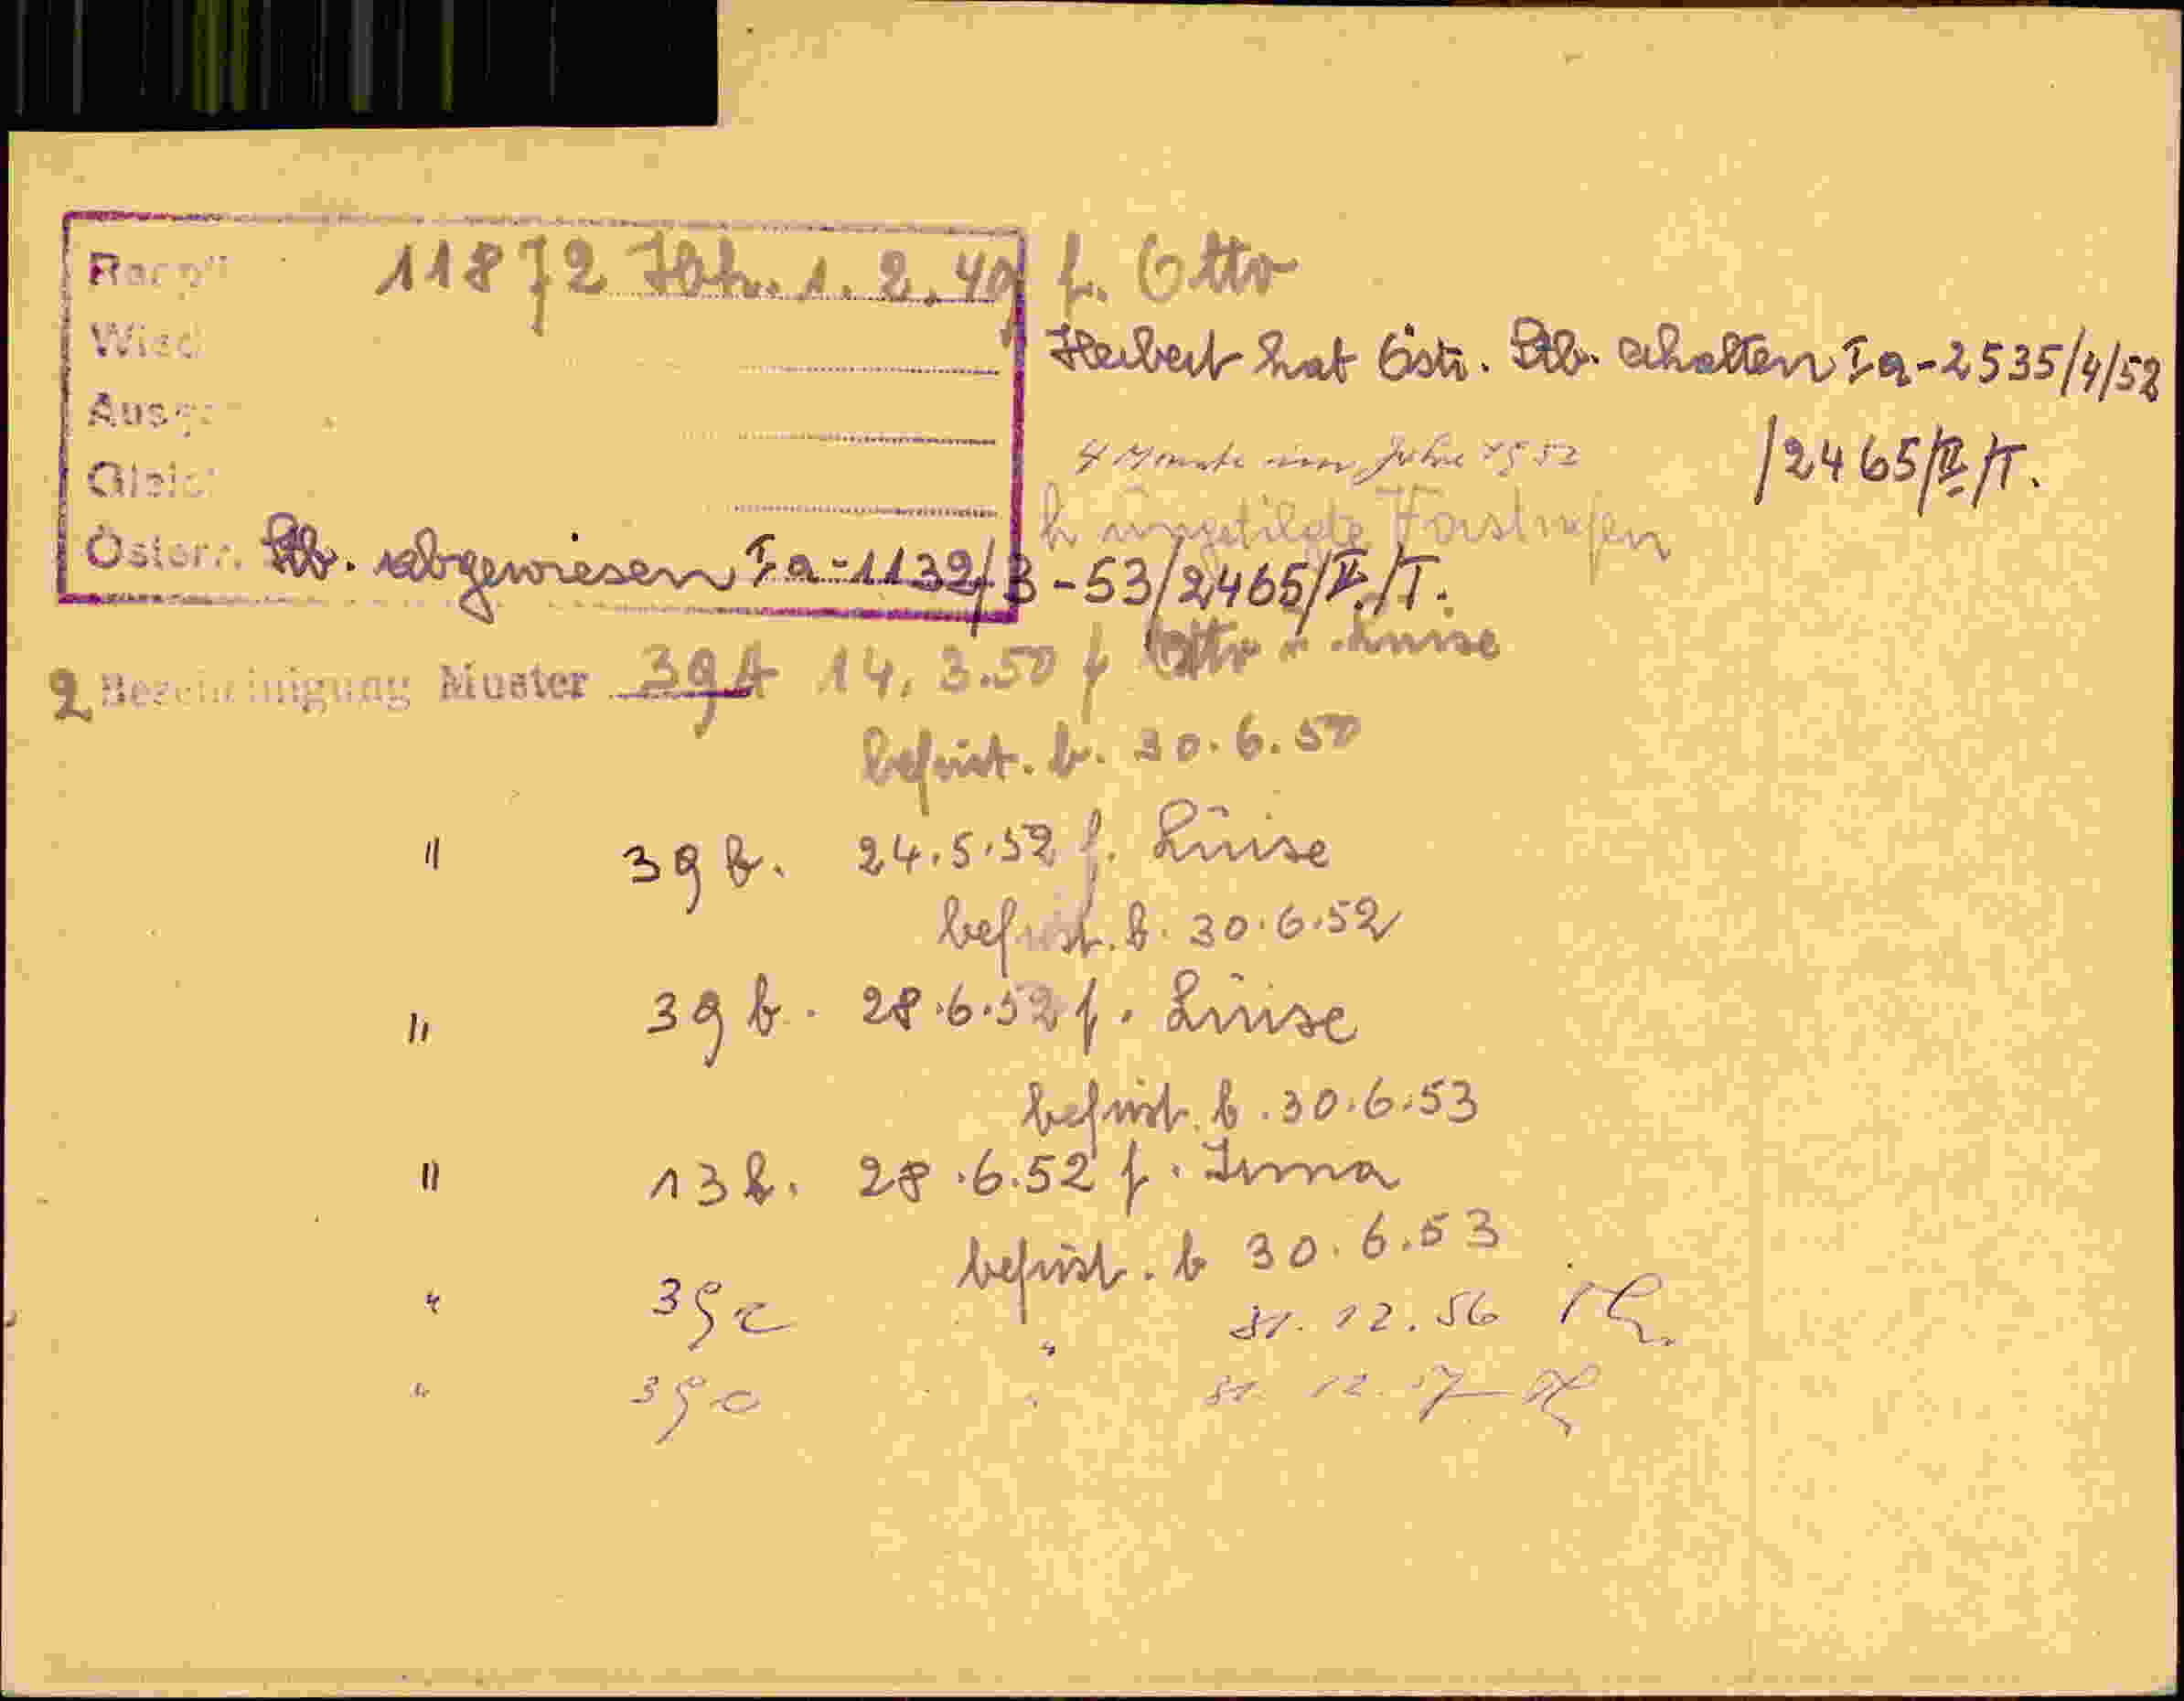 11872 Ibk. 1. 2. 40 f. Otto
Wied
Herbert hat Östr. Stb. erhalten Ia-2535/4/52
Ausg
4 Monate im Jahre 1952 /2465/II/T.
Gleic
h ungetilgte Vorstrafen
Österr. Stb. abgewiesen Ia-1132/3-53/2465/II/T.
2 Bescheinigung Muster 39A 14. 3. 50 f Otto u. Luise
befrist. b. 30. 6. 50
" 39 b. 24. 5. 52 f. Luise
befrist. b. 30. 6. 52
" 39 b. 28. 6. 52 f. Luise
befrist. b. 30. 6. 53
" 13 b. 28. 6. 52 f. Irma
befrist. b 30. 6. 53
" 39 " 31. 12. 56
" 39 " 31. 12. 57